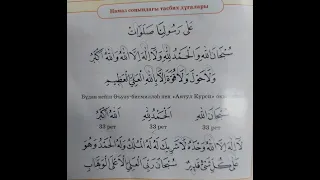 Намаз соңындағы тәсбих дұғалары
عَلَى رَسُولِنَا صَلَوَاتٌ
سُبْحَانَ اللهِ وَالْحَمْدُ لِلهِ وَلَا إِلَهَ إِلَّا اللهُ وَاللهُ أَكْبَرُ
وَلَا حَوْلَ وَلَا قُوَّةَ إِلَّا بِاللهِ الْعَلِيِّ الْعَظِيمِ
Бұдан кейін Әғузу-бисмилләһ «Аятул Курси»
سُبْحَانَ اللهِ الْحَمْدُ لِلهِ اللهُ أَكْبَرُ
33 рет 33 рет 33 рет
لَا إِلَهَ إِلَّا اللهُ وَحْدَهُ لَا شَرِيكَ لَهُ لَهُ الْمُلْكُ وَلَهُ الْحَمْدُ وَهُوَ
عَلَى كُلِّ شَيْءٍ قَدِيرٌ سُبْحَانَ رَبِّيَ الْعَلِيِّ الْأَعْلَى الْوَهَّابِ